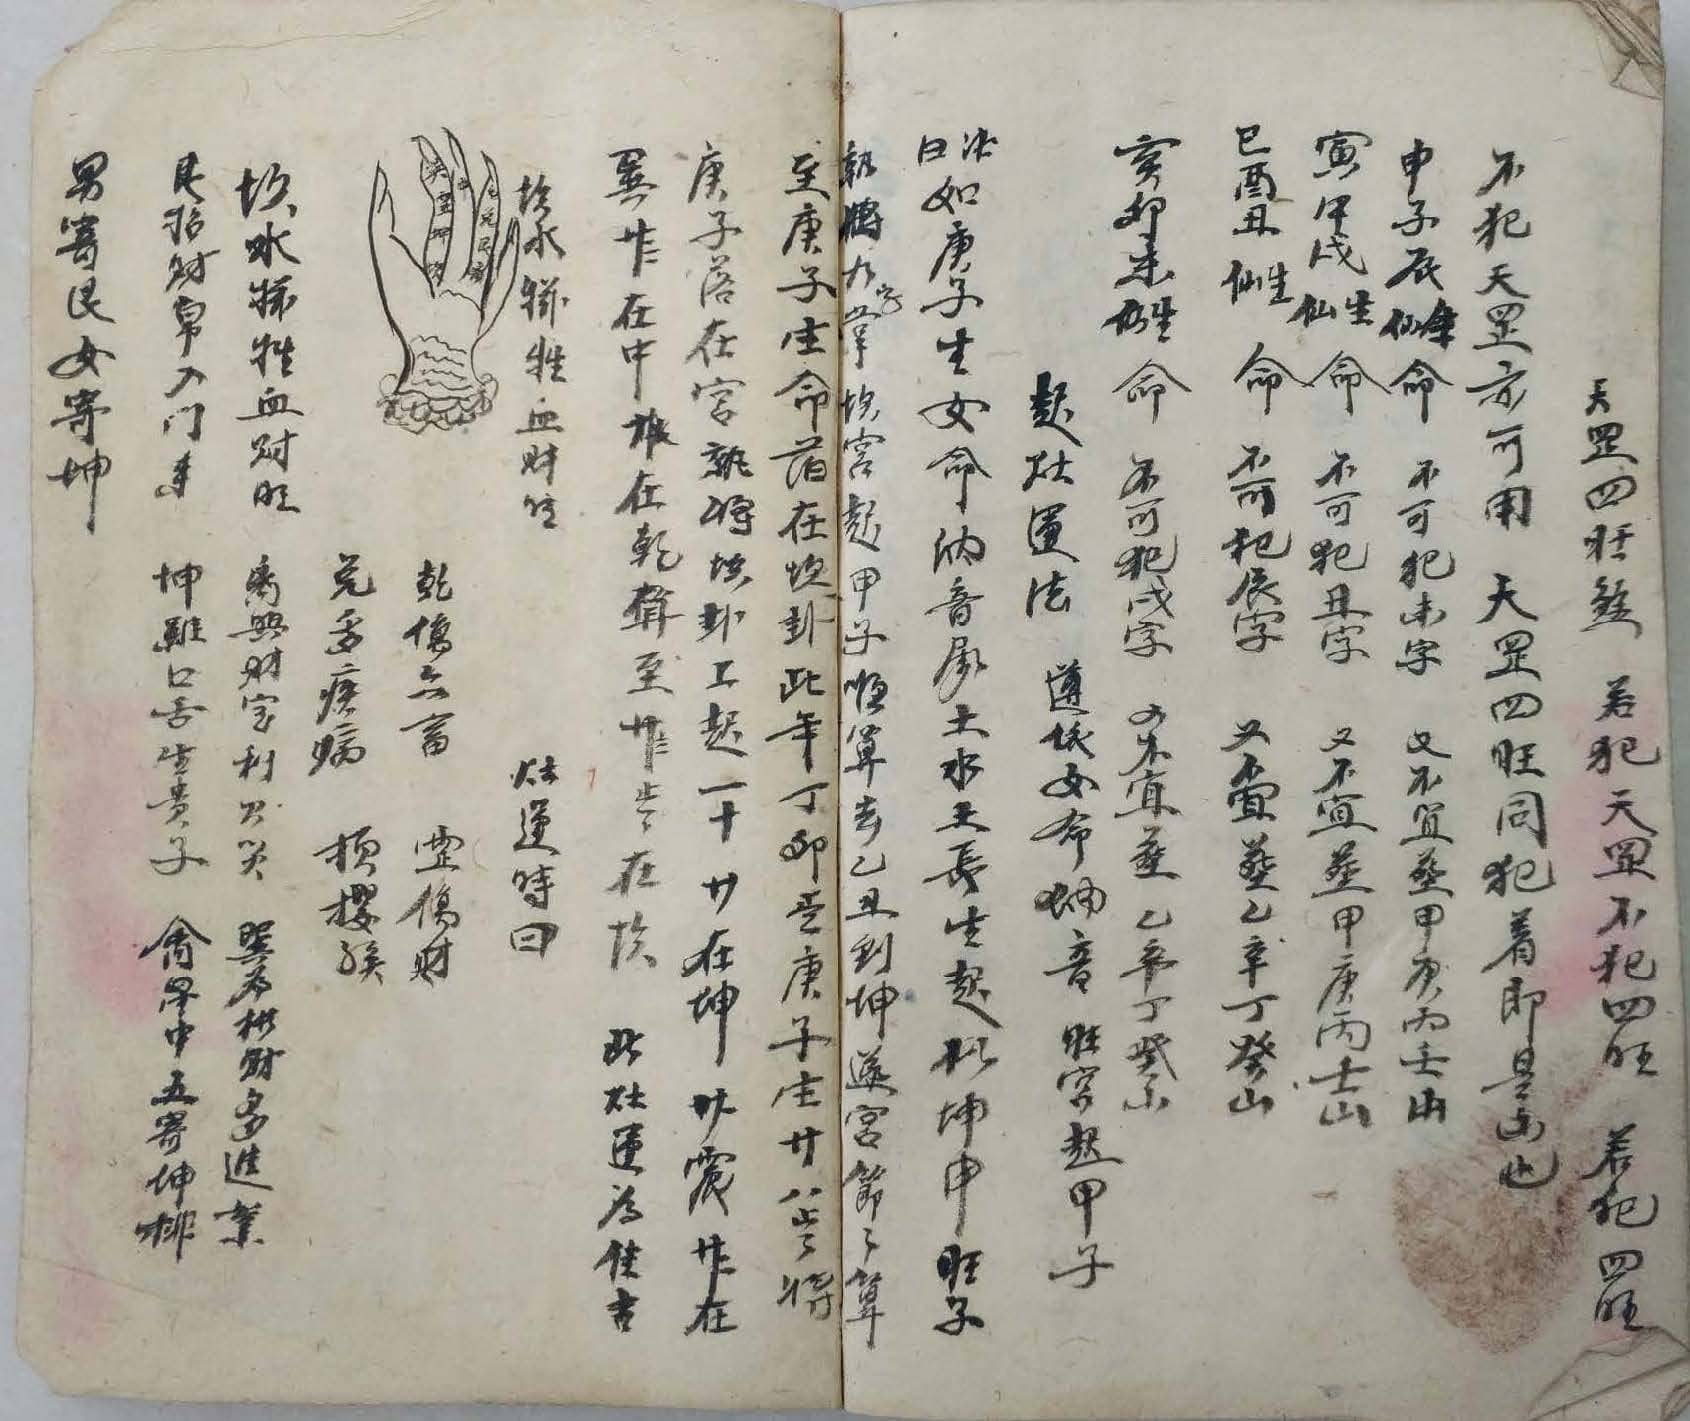 天罡四旺煞 若犯天罡不犯四旺 若犯四旺
不犯天罡亦可用 天罡四旺同犯着即是凶也
申子辰仙命 不可犯未字 又不宜葬甲庚丙壬山
寅午戌仙生命 不可犯丑字 又不宜葬甲庚丙壬山
巳酉丑仙生命 不可犯辰字 又不宜葬乙辛丁癸山
亥卯未仙生命 不可犯戌字 又不宜葬乙辛丁癸山
起灶運法 遵依女命納音 旺宮起甲子
法曰如庚子生女命納音屬土水土長生起於坤申旺子
就將九字五掌坎宮起甲子順算去乙丑到坤逐宮節々算
至庚子生命落在坎卦此年丁卯是庚子生廿八歲將
庚子落在宮就將坎卦上起一十廿在坤卅震卌在
巽 在中 在乾 至 在坎 此灶運為佳吉
坎水豬牲血財旺 灶運詩曰
乾傷六畜 震傷財
兌多疾病 損
坎水豬牲血財旺 離興財宝利 巽為 財多進業
艮招財帛入門來 坤雖口舌生貴子 中五寄坤排
男寄艮女寄坤